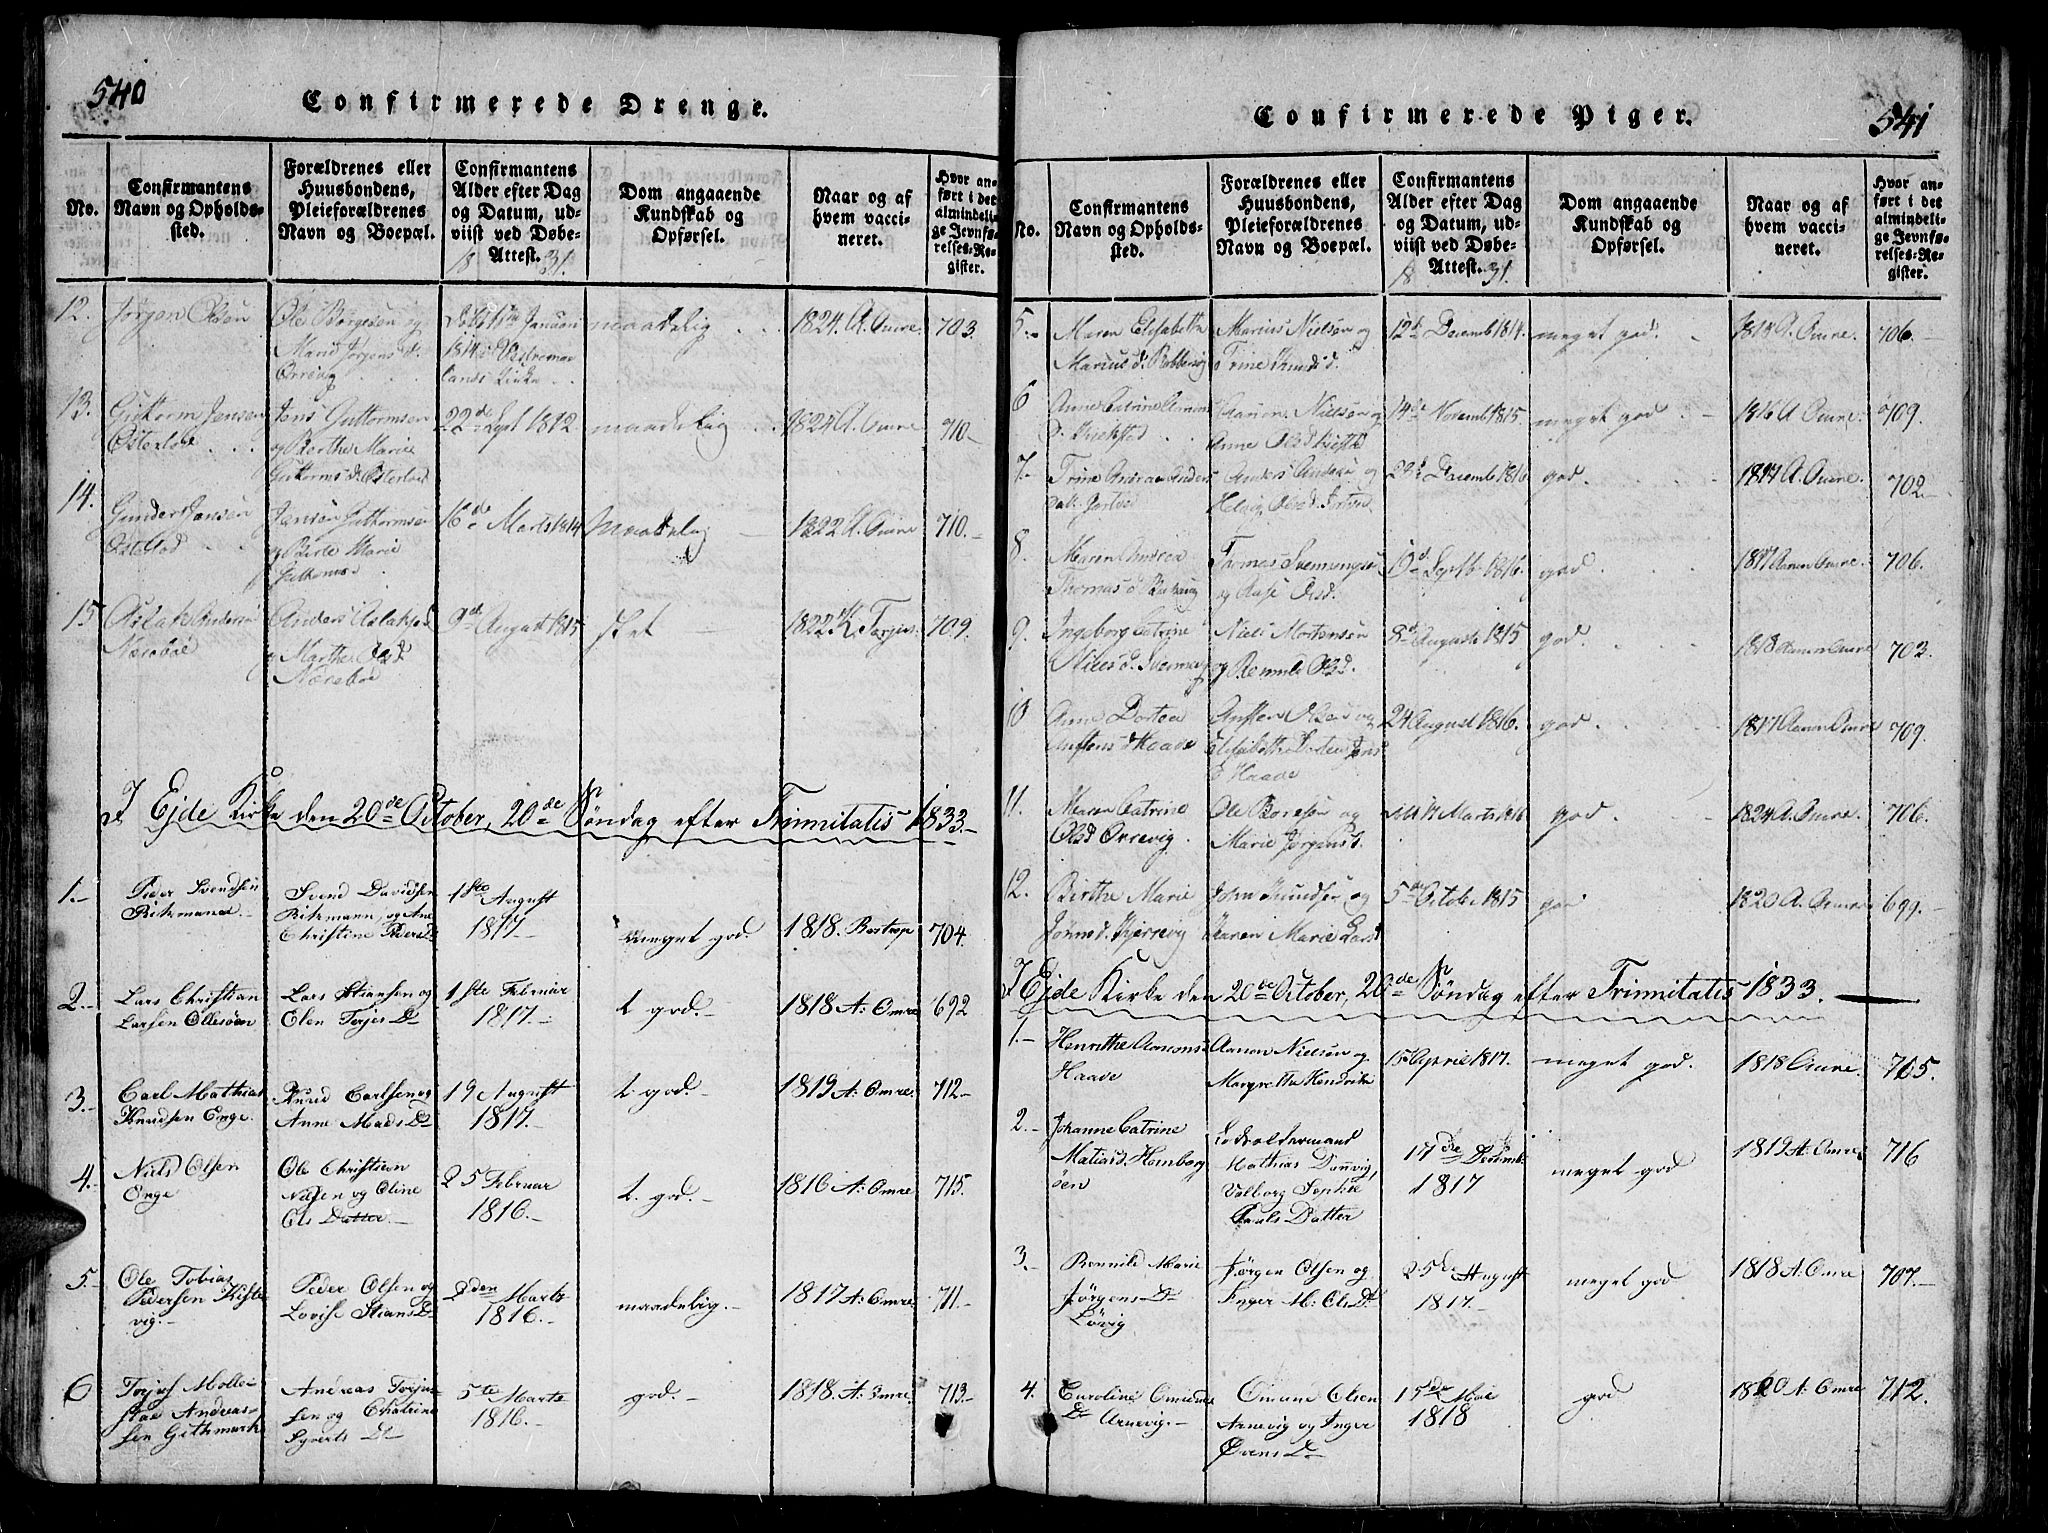 540
Confirmerede Drenge.
No.
Confirmantens
Navn og Opholds-
sted.
Forældrenes eller
Huusbondens,
Pleieforældrenes
Navn og Boepæl.
Confirmantens
Alder efter Dag
og Datum, ud-
viist ved Døbe-
Attest.
18 31.
Dom angaaende
Kundskab og
Opførsel.
Naar og af
hvem vacci-
neret.
Hvor an-
ført i det
almindeli-
ge Jevnfø-
relses-Re-
gister.
12. Jørgen Olsen
Ole Børgesen og
Marie Jørgens d.
Orrevig
Januari
1814 i Vestremoe
lands Kirke
maadelig
1824. A. Omre.
703.
13. Guttorm Jensen
Osterhoe
Jens Guttormsen
og Berthe Marie
Guttorms d.
22de Sept 1812.
maadelig
1824 A. Omre
710-
14. Gunder Jensen
Jensen Guttormsen
og Berte Marie
Guttormsd.
16de Marts 1814
Maadelig
1822 A. Omre
710.-
15 Aslak Andersen
Nærebøe
Anders Aslaksen
og Marthe
Nærebøe
9de August 1815
slet
1822 K. Torjus.
709.
I Ejde Kirke den 20de October, 20de Søndag efter Trinnitatis 1833.-
1.- Peder Svendsen
Rikmand.
Svend Davidsen
Rikmann, og Ane
Christine Peders D
1ste August
1817.
meget god.
1818. Bostrop
704.
2.- Lars Christian
Larsen Ollesøen
Lars Stiansen og
Elen Torjes D
1ste Februar
1817.-
t. god.-
1818 A: Omre
692
3.- Carl Mathias
Knudsen Enge.
Knud Carlsen og
Anne Mads D
19 August
1817.-
t. god.-
1819 A: Omre.
712-
4.- Niels Olsen
Enge
Ole Christian
Nilsen og Oline
Ols Datter.-
25 Februar
1816.-
t. god.-
1816 A: Omre
715.
5.- Ole Tobias
Pedersen Kiste
vig.-
Peder Olsen og
Lovise Stians D
2den Marts
1816.-
maadelig.-
1817 A: Omre.
711.-
6 Torjus Molle-
stae Andreas-
sen Githmark
Andreas Torjus-
sen og Chatrine
Syverts D
5te Marts
1816.-
god.-
1818. A: Omre.
713.-
541
Confirmerede Piger.
No.
Confirmantens
Navn og Opholds-
sted.
Forældrenes eller
Huusbondens,
Pleieforældrenes
Navn og Boepæl.
Confirmantens
Alder efter Dag
og Datum, ud-
viist ved Døbe-
Attest.
18 31.
Dom angaaende
Kundskab og
Opførsel.
Naar og af
hvem vacci-
neret.
Hvor an-
ført i det
almindeli-
ge Jevnfø-
relses-Re-
gister.
5.- Maren Elisabeth
Marius d.
Marius Nielsen og
Trine Knuds d.
12te Decemb 1814.
meget god.
1814 A. Omre.
706.-
6
Nielsen og
Anne Olsd
14de Novemb 1815
meget god
1816 A. Omre
709.
7- Trine Andrea Anders
dat.
Anders Anders og
Helvig Olsd.
Decemb 1816
god.
1817 A. Omre.
702.-
8. Maren Andrea
Thomas d.
Tomes Svennungs
og Aase Olsd.
Septb 1816.
god.
1817 Aanon Omre.
706.
9. Ingeborg Catrine
Niels d.
Niels Mortensen
og Ronnile Olsd.
8de August 1815
god
1818 Aanon Omre
703.
10 Anne Dortea
Anstens d Haave
Ansten Olsen og
Elisabeth
Haave
24 August 1816.
god.
1817 Aanon Omre
709.
11. Maren Catrine
Olsd Orrevig.
Ole Børesen og
Marie Jørgens d.
17 Marts 1816
god.
1824 A. Omre.
706.
12. Birthe Marie
Jønne d.
John Knudsen og
Karen Marie Lars d
5de October 1815
god
1820 A. Omre
699.-
I Ejde Kirke den 20de October, 20de Søndag efter Trinnitatis 1833.
1.- Henrithe Aanons
Haave
Aanon Nielsen og
Margrethe Hendriks
15 April 1817.
meget god.
1818 Omre.
705.
2.- Johanne Catrine
Matias d. Homborg
öen
Lodsoldermand
Mathias Dannvig,
Valborg Sophie
Pauls Datter
17de Decemb
1817
meget god
1819 A: Omre.
716
3.- Ronnild Marie
Jörgens D
Lövig
Jørgen Olsen og
Inger M: Ols D
25de August
1817.-
meget god
1818 A: Omre
707.-
4. Caroline Omunds
D Arnevig.-
Omun Olsen
Arnevig og Inger
Ovens D
15de Mai
1818
god
1820 A: Omre
712.